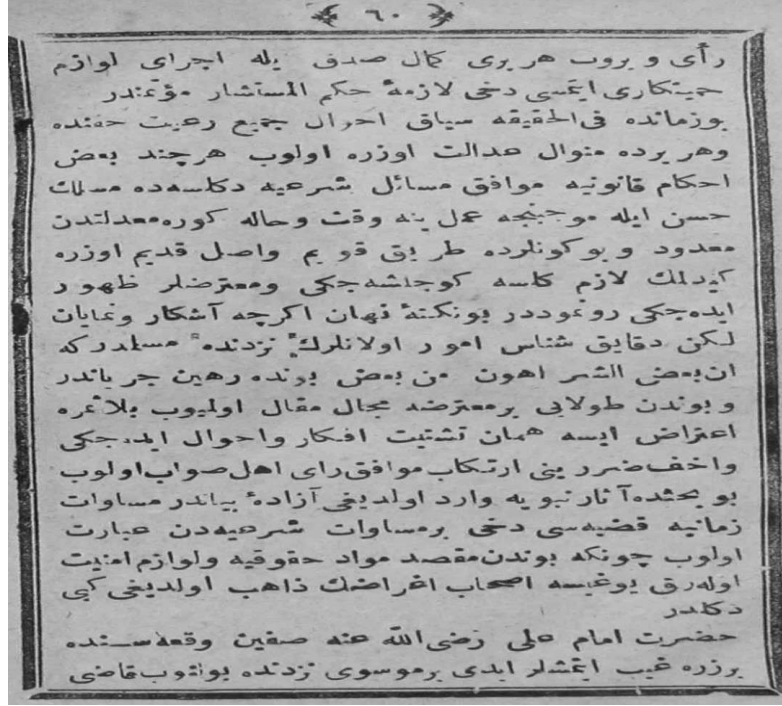 ٦٠
رأی و بروب هر بری كمال صدق یله اجرای لوازم
حمیتكاری ایتمسی دخی لازمۀ حكم المستشار مؤتمندر
بوزمانده فی الحقیقه سیاق احوال جمیع رعیت حقنده
وهر یرده منوال عدالت اوزره اولوب هرچند بعض
احكام قانونیه موافق مسائل شرعیه دكلسه ده مسلك
حسن ایله موجبنجه عمل ینه وقت وحاله كوره معدلتدن
معدود و بو كونلرده طریق قویم واصل قدیم اوزره
كیدلمك لازم كلسه كوجلشه جكی ومعترضلر ظهور
ایده جكی رونموددر بونكتۀ نهان اكرچه آشكار ونمایان
لكن دقایق شناس امور اولانلرك نزدنده مسلمدر كه
ان بعض الشر اهون من بعض بونده رهین جریاندر
و بوندن طولایی بر معترضه مجال مقال اولمیوب بلاثمره
اعتراض ایسه همان تشتیت افكار واحوال ایده جكی
واخف ضررینی ارتكاب موافق رای اهل صواب اولوب
بو بحثده آثار نبویه وارد اولدیغی آزادۀ بیاندر مساوات
زمانیه قضیه سی دخی بر مساوات شرعیه دن عبارت
اولوب چونكه بوندن مقصد مواد حقوقیه ولوازم امنیت
اوله رق یوغیسه اصحاب اغراضك ذاهب اولدیغی كبی
دكلدر
حضرت امام علی رضی الله عنه صفین وقعه سنده
بر زره غیب ایتمشلر ایدی بر موسوی نزدنده بولنوب قاضی